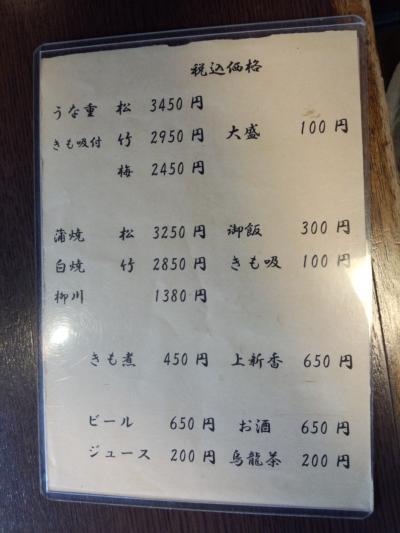 税込価格
うな重 松 3450円
きも吸付 竹 2950円 大盛 100円
梅 2450円
蒲焼 松 3250円 御飯 300円
白焼 竹 2850円 きも吸 100円
柳川 1380円
きも煮 450円 上新香 650円
ビール 650円 お酒 650円
ジュース 200円 烏龍茶 200円